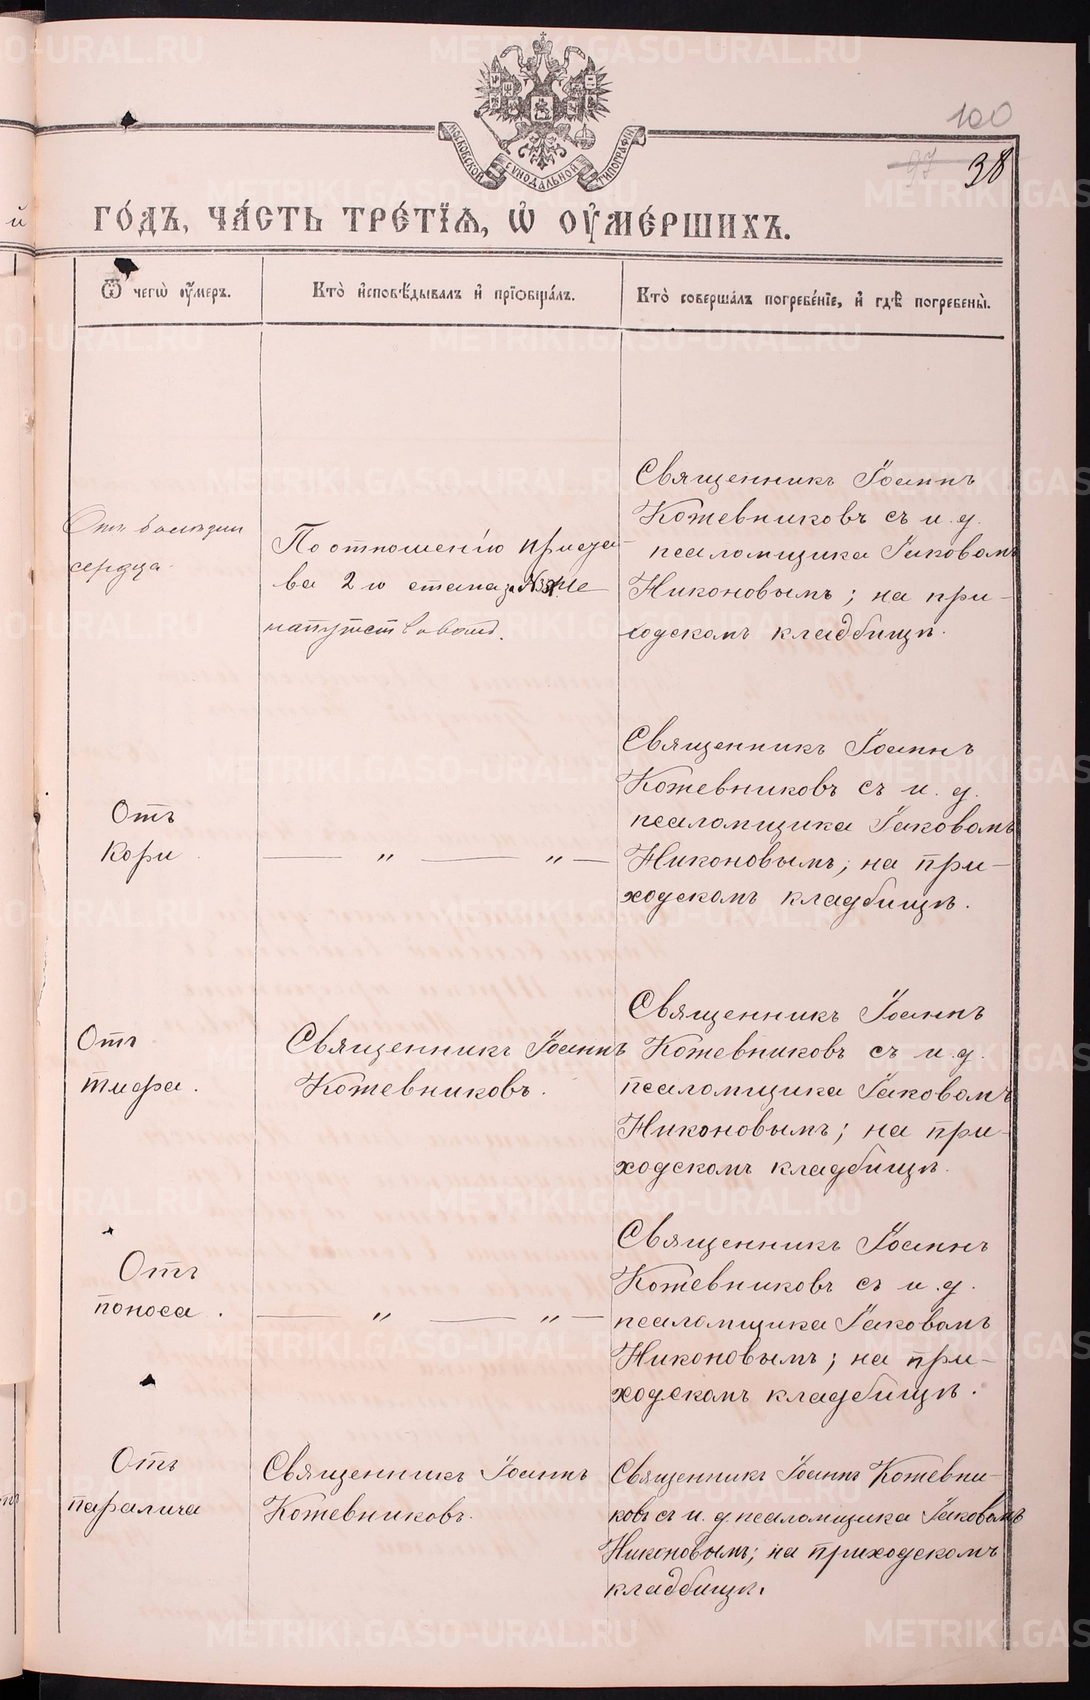 100
97 98
МОСКОВСКОЙ СѴНОДАЛЬНОЙ ТИПОГРАФІИ
ГО́ДЪ, ЧА́СТЬ ТРЕ́ТЇѦ, Ѡ҆ ОУ҆МЕ́РШИХЪ.
Ѿ чегѡ̀ оу҆́меръ.
Кто̀ и҆сповѣ́дывалъ и҆ прїѻбща́лъ.
Кто̀ соверша́лъ погребе́нїе, и҆ гдѣ̀ погребены̀.
Отъ болѣзни
сердца.
По отношенію приста-
ва 2 го стана за №
напутствовавъ.
Священникъ Іоаннъ
Кожевниковъ съ и. д.
псаломщика Іаковомъ
Никоновымъ; на при-
ходскомъ кладбищѣ.
Отъ
кори
— „ — „ —
Священникъ Іоаннъ
Кожевниковъ съ и. д.
псаломщика Іаковомъ
Никоновымъ; на при-
ходскомъ кладбищѣ.
Отъ
тифа.
Священникъ Іоаннъ
Кожевниковъ.
Священникъ Іоаннъ
Кожевниковъ съ и. д.
псаломщика Іаковомъ
Никоновымъ; на при-
ходскомъ кладбищѣ.
Отъ
поноса.
— „ — „ —
Священникъ Іоаннъ
Кожевниковъ съ и. д.
псаломщика Іаковомъ
Никоновымъ; на при-
ходскомъ кладбищѣ.
Отъ
паралича
Священникъ Іоаннъ
Кожевниковъ.
Священникъ Іоаннъ Кожевни-
ковъ съ и. д. псаломщика Іаковомъ
Никоновымъ; на приходскомъ
кладбищѣ.
METRIKI.GASO-URAL.RU